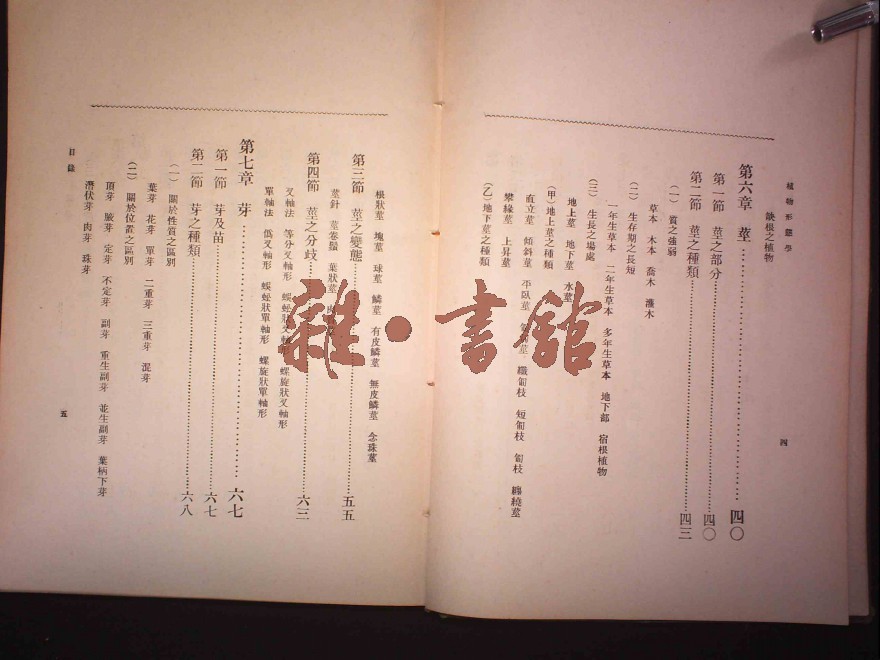 植物形態學
四
缺根之植物
第六章 莖……………………四〇
第一節 莖之部分……………………四〇
第二節 莖之種類……………………四三
(一) 質之强弱
草本 木本 喬木 灌木
(二) 生存期之長短
一年生草本 二年生草本 多年生草本 地下部 宿根植物
(三) 生長之場處
地上莖 地下莖 水莖
(甲)地上莖之種類
直立莖 傾斜莖 平臥莖 莖 纖匐枝 短匐枝 匐枝 纏繞莖
攀緣莖 上昇莖
(乙)地下莖之種類
根狀莖 塊莖 球莖 鱗莖 有皮鱗莖 無皮鱗莖 念珠莖
第三節 莖之變態……………………五五
莖針 莖卷鬚 葉狀莖
第四節 莖之分歧……………………六三
叉軸法 等分叉軸形 蜈蚣狀叉軸形 螺旋狀叉軸形
單軸法 僞叉軸形 蜈蚣狀單軸形 螺旋狀單軸形
第七章 芽……………………六七
第一節 芽及苗……………………六七
第二節 芽之種類……………………六八
(一) 關於性質之區別
葉芽 花芽 單芽 二重芽 三重芽 混芽
(二) 關於位置之區別
頂芽 腋芽 定芽 不定芽 副芽 重生副芽 並生副芽 葉柄下芽
潛伏芽 肉芽 珠芽
目錄
五
雜·書館